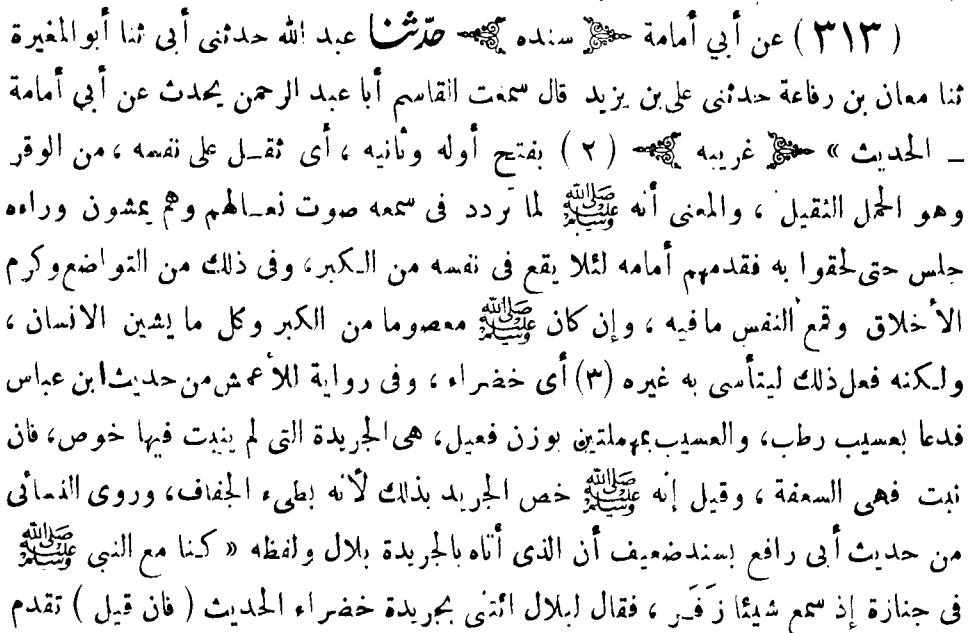 ( ٣١٣ ) عن أبي أمامة ﴿ سنده ﴾ حدّثنا عبد الله حدثنى أبى ثنا أبو المغيرة
ثنا معان بن رفاعة حدثنى على بن يزيد قال سمعت القاسم أبا عبد الرحمن يحدث عن أبى أمامة
ـ الحديث » ﴿ غريبه ﴾ ( ٢ ) بفتح أوله وثانيه ، أى ثقـل على نفسه ، من الوقر
وهو الحمل الثقيل ، والمعنى أنه ﷺ لما تردد فى سمعه صوت نعـالهم وهم يمشون وراءه
جلس حتى لحقوا به فقدمهم أمامه لئلا يقع فى نفسه من الـكبر، وفى ذلك من التواضع وكرم
الأخلاق وقمع النفس ما فيه ، وإن كان ﷺ معصوما من الكبر وكل ما يشين الانسان ،
ولـكنه فعل ذلك ليتأسى به غيره (٣) أى خضراء ، وفى رواية للأعمش من حديث ابن عباس
فدعا بعسيب رطب، والعسيب بمهملتين بوزن فعيل، هى الجريدة التى لم ينبت فيها خوص، فان
نبت فهى السعفة ، وقيل إنه ﷺ خص الجريد بذلك لأنه بطىء الجفاف، وروى النسائى
من حديث أبى رافع بسند ضعيف أن الذى أتاه بالجريدة بلال ولفظه « كـنا مع النبى ﷺ
فى جنازة إذ سمع شيئا زَفَـر ، فقال لبلال ائتنى بجريدة خضراء الحديث ( فان قيل ) تقدم